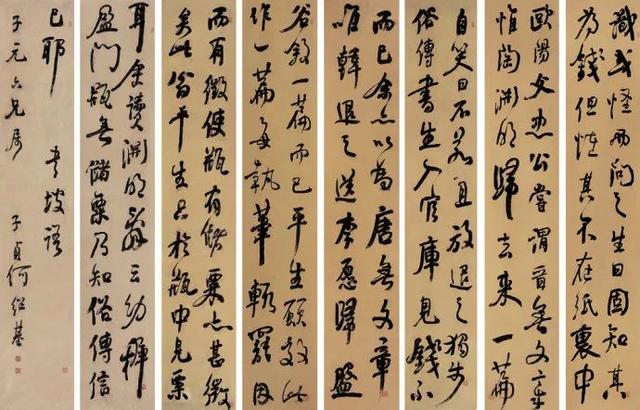 識或怪而問之生曰固知其
為錢但怪其不在紙裏中
歐陽文忠公嘗謂晉無文章
惟陶淵明歸去來一篇
自笑曰不若且放退之獨步
俗傳書生入官庫見錢不
而已余亦以為唐無文章
唯韓退之送李愿歸盤
谷敘一篇而已平生願效此
作一篇每執筆輒罷因
而有徵使瓶有儲粟亦甚微
矣此翁平生只於瓶中見粟
耳余讀淵明辭云幼稚
盈門瓶無儲粟乃知俗傳信
已耶 書坡語
子元六兄屬 子貞何紹基